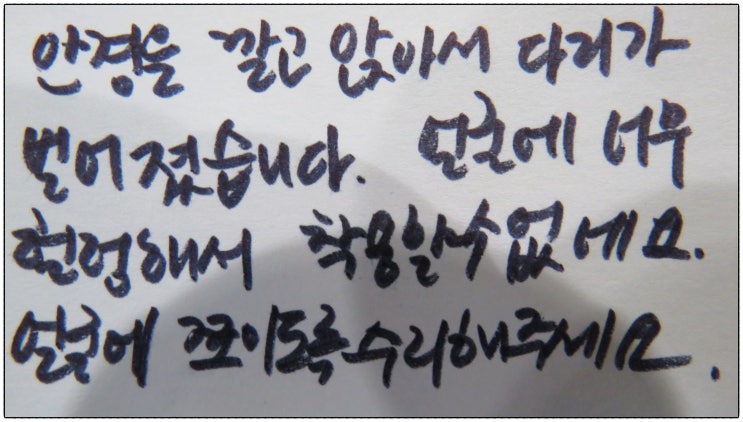 안경을 깔고 앉아서 다리가
벌어졌습니다. 얼굴에 너무
헐렁해서 착용할수 없네요.
얼굴에 쪼이도록 수리해주세요.